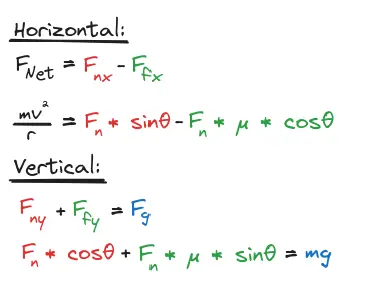 Horizontal:
F_Net = F_nx - F_fx
mv²/r = F_n * sinθ - F_n * μ * cosθ
Vertical:
F_ny + F_fy = F_g
F_n * cosθ + F_n * μ * sinθ = mg